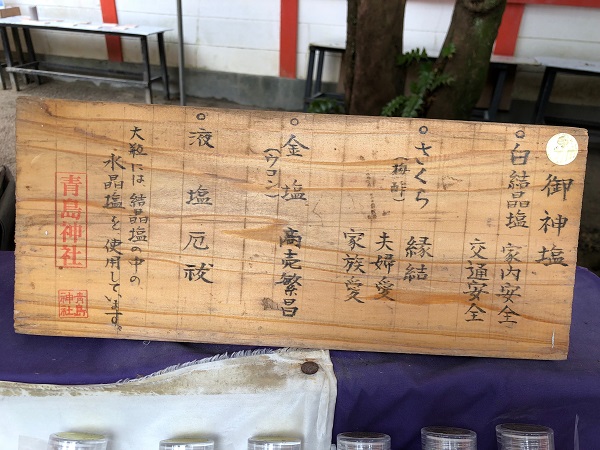 御神塩
○白結晶塩 家内安全
交通安全
○さくら 縁結
(梅酢) 夫婦愛
家族愛
○金塩 商売繁昌
(ウコン)
○液塩厄祓
大瓶には結晶塩の中の
氷晶塩を使用しています。
青島神社
青島
神社